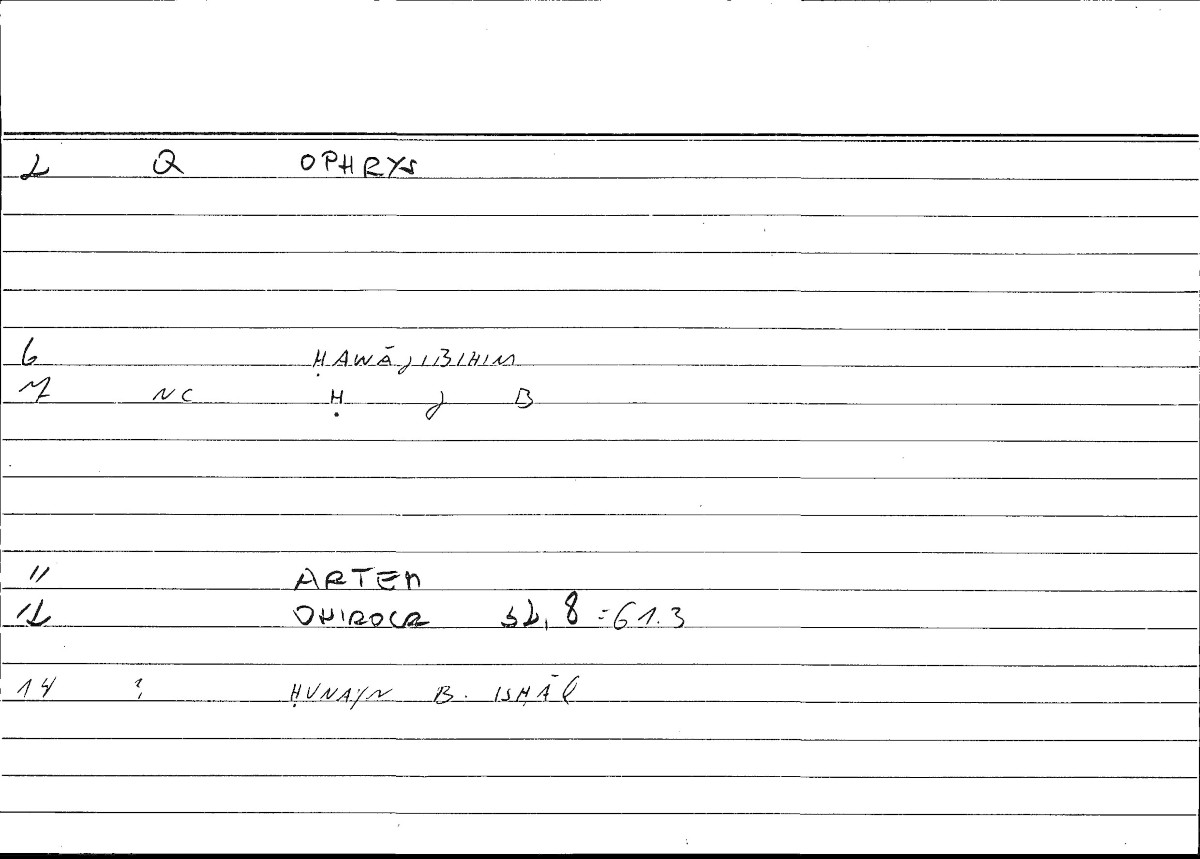 2 Q OPHRYS
6 ḤAWĀJIBIHIM
7 NC Ḥ J B
11 ARTEM
12 ONIROCR 32,8 = 61.3
14 ? ḤUNAYN B. ISḤĀQ